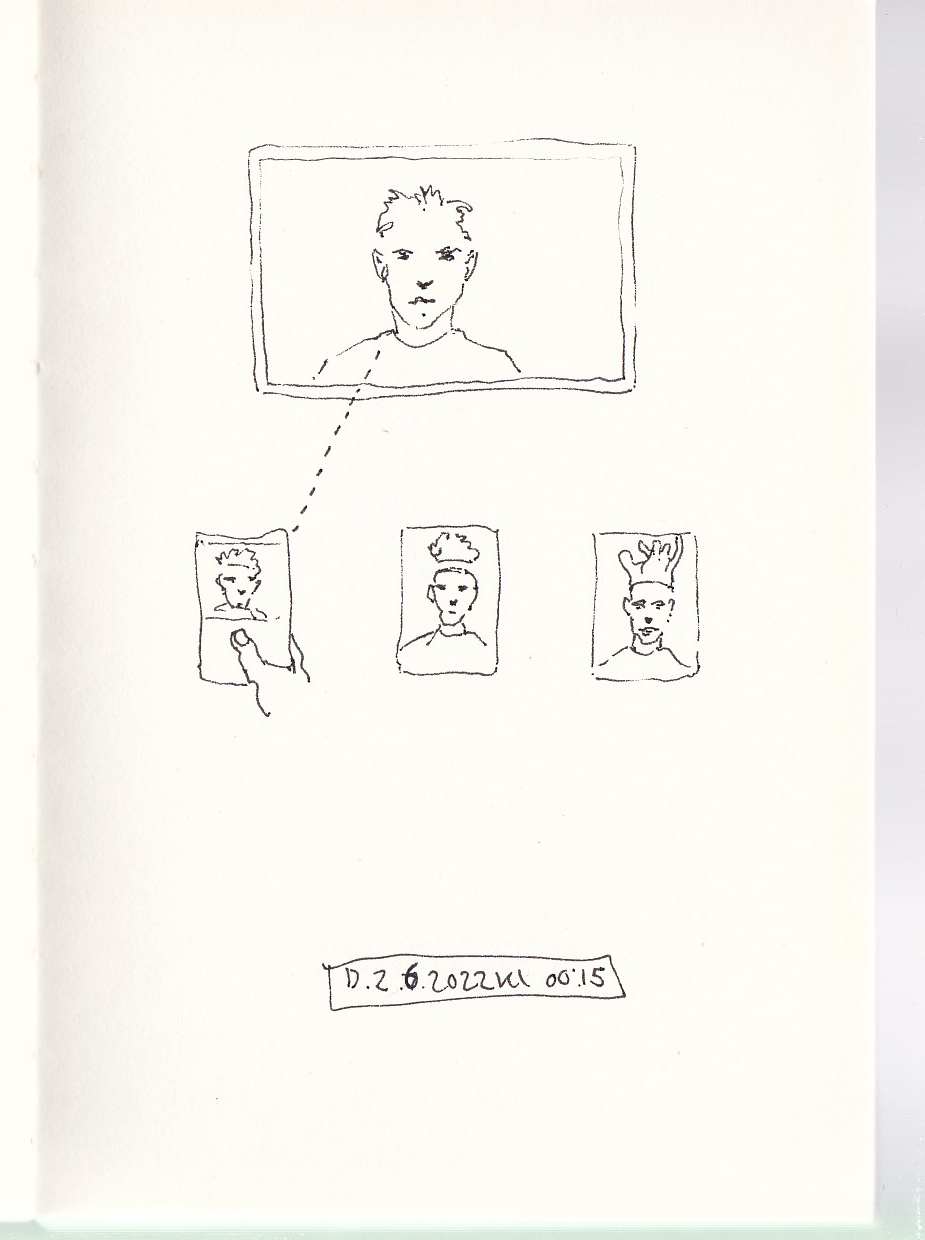 D.2.6.2022 kl 00:15